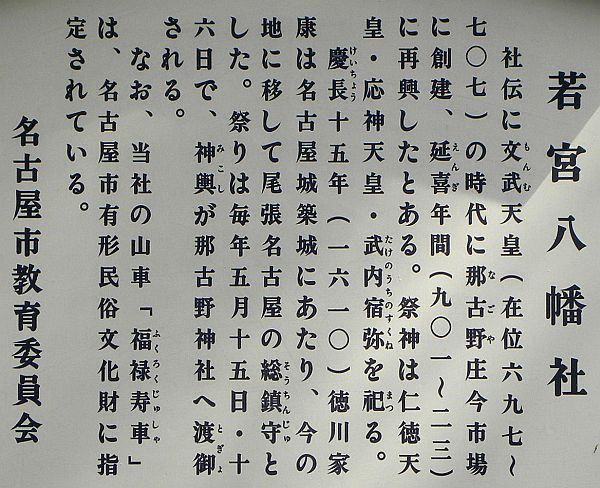 若宮八幡社
社伝に文武天皇（在位六九七～
七〇七）の時代に那古野庄今市場
に創建、延喜年間（九〇一～二三）
に再興したとある。祭神は仁徳天
皇・応神天皇・武内宿弥を祀る。
慶長十五年（一六一〇）徳川家
康は名古屋城築城にあたり、今の
地に移して尾張名古屋の総鎮守と
した。祭りは毎年五月十五日・十
六日で、神輿が那古野神社へ渡御
される。
なお、当社の山車「福禄寿車」
は、名古屋市有形民俗文化財に指
定されている。
名古屋市教育委員会